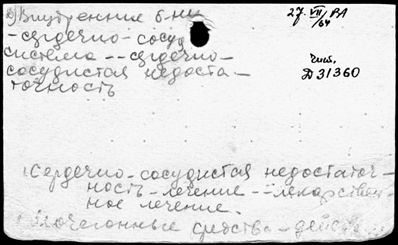 Внутренние б-ни
27. VII/64 РА
-сердечно-сосуд
система -- сердечно-
сосудистая недоста-
точность
Чит.
Д 31360
Сердечно-сосудистая недостаточ-
ность - лечение -- лекарствен-
ное лечение.
Мочегонные средства - действие